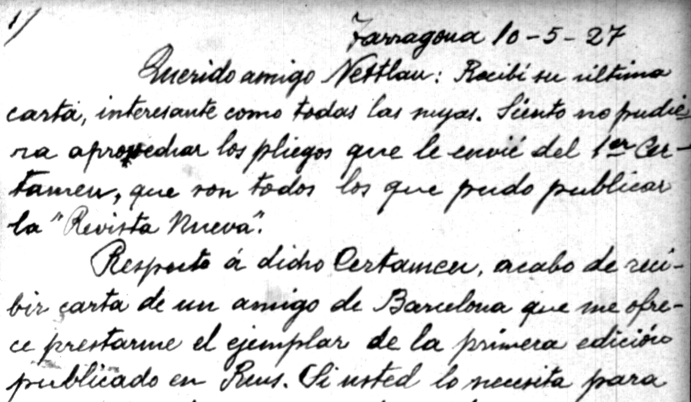 1/
Tarragona 10-5-27
Querido amigo Nettlau: Recibí su última
carta, interesante como todas las suyas. Siento no pudie-
ra aprovechar los pliegos que le envié del 1er Cer-
tamen, que son todos los que pudo publicar
la "Revista Nueva".
Respecto á dicho Certamen, acabo de reci-
bir carta de un amigo de Barcelona que me ofre-
ce prestarme el ejemplar de la primera edición
publicado en Reus. Si usted lo necesita para